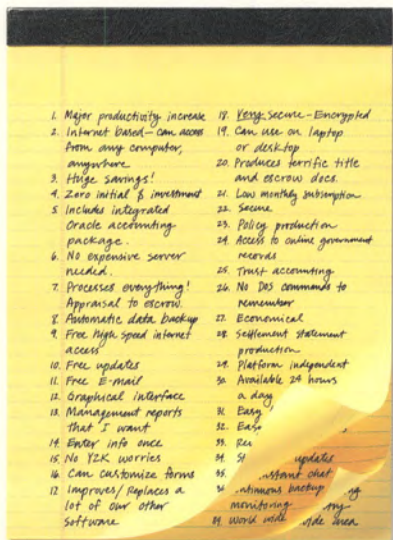 1. Major productivity increase
2. Internet based - can access
from any computer,
anywhere
3. Huge savings!
4. Zero initial $ investment
5. Includes integrated
Oracle accounting
package.
6. No expensive server
needed.
7. Processes everything!
Appraisal to escrow.
8. Automatic data backup
9. Free high speed internet
access
10. Free updates
11. Free E-mail
12. Graphical interface
13. Management reports
that I want
14. Enter info once
15. No Y2K worries
16. Can customize forms
17. Improves/Replaces a
lot of our other
software
18. Very secure - Encrypted
19. Can use on laptop
or desktop
20. Produces terrific title
and escrow docs.
21. Low monthly subscription
22. Secure
23. Policy production
24. Access to online government
records
25. Trust accounting
26. No DOS commands to
remember
27. Economical
28. Settlement statement
production
29. Platform independent
30. Available 24 hours
a day
31. Easy
32. Easy
33.
34. updates
35. chat
36. backup
monitoring
world wide area